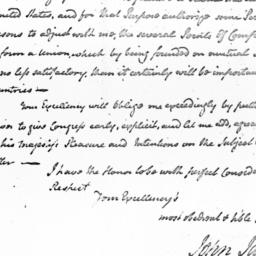 nited States, and for that Purpose authorize some Per
sons to adjust with me, the several Points of Comp
form a union, which by being founded on mutual
no less satisfactory than it certainly will be important
untries —
Your Excellency will oblige me exceedingly by putt
wer to give Congress early, explicit, and let me add, agree
his Majesty's Pleasure and Intentions on the Subject
tter —
I have the Honor to be with perfect Consid
Respect
Your Excellency's
most obedient & hble
John Ja